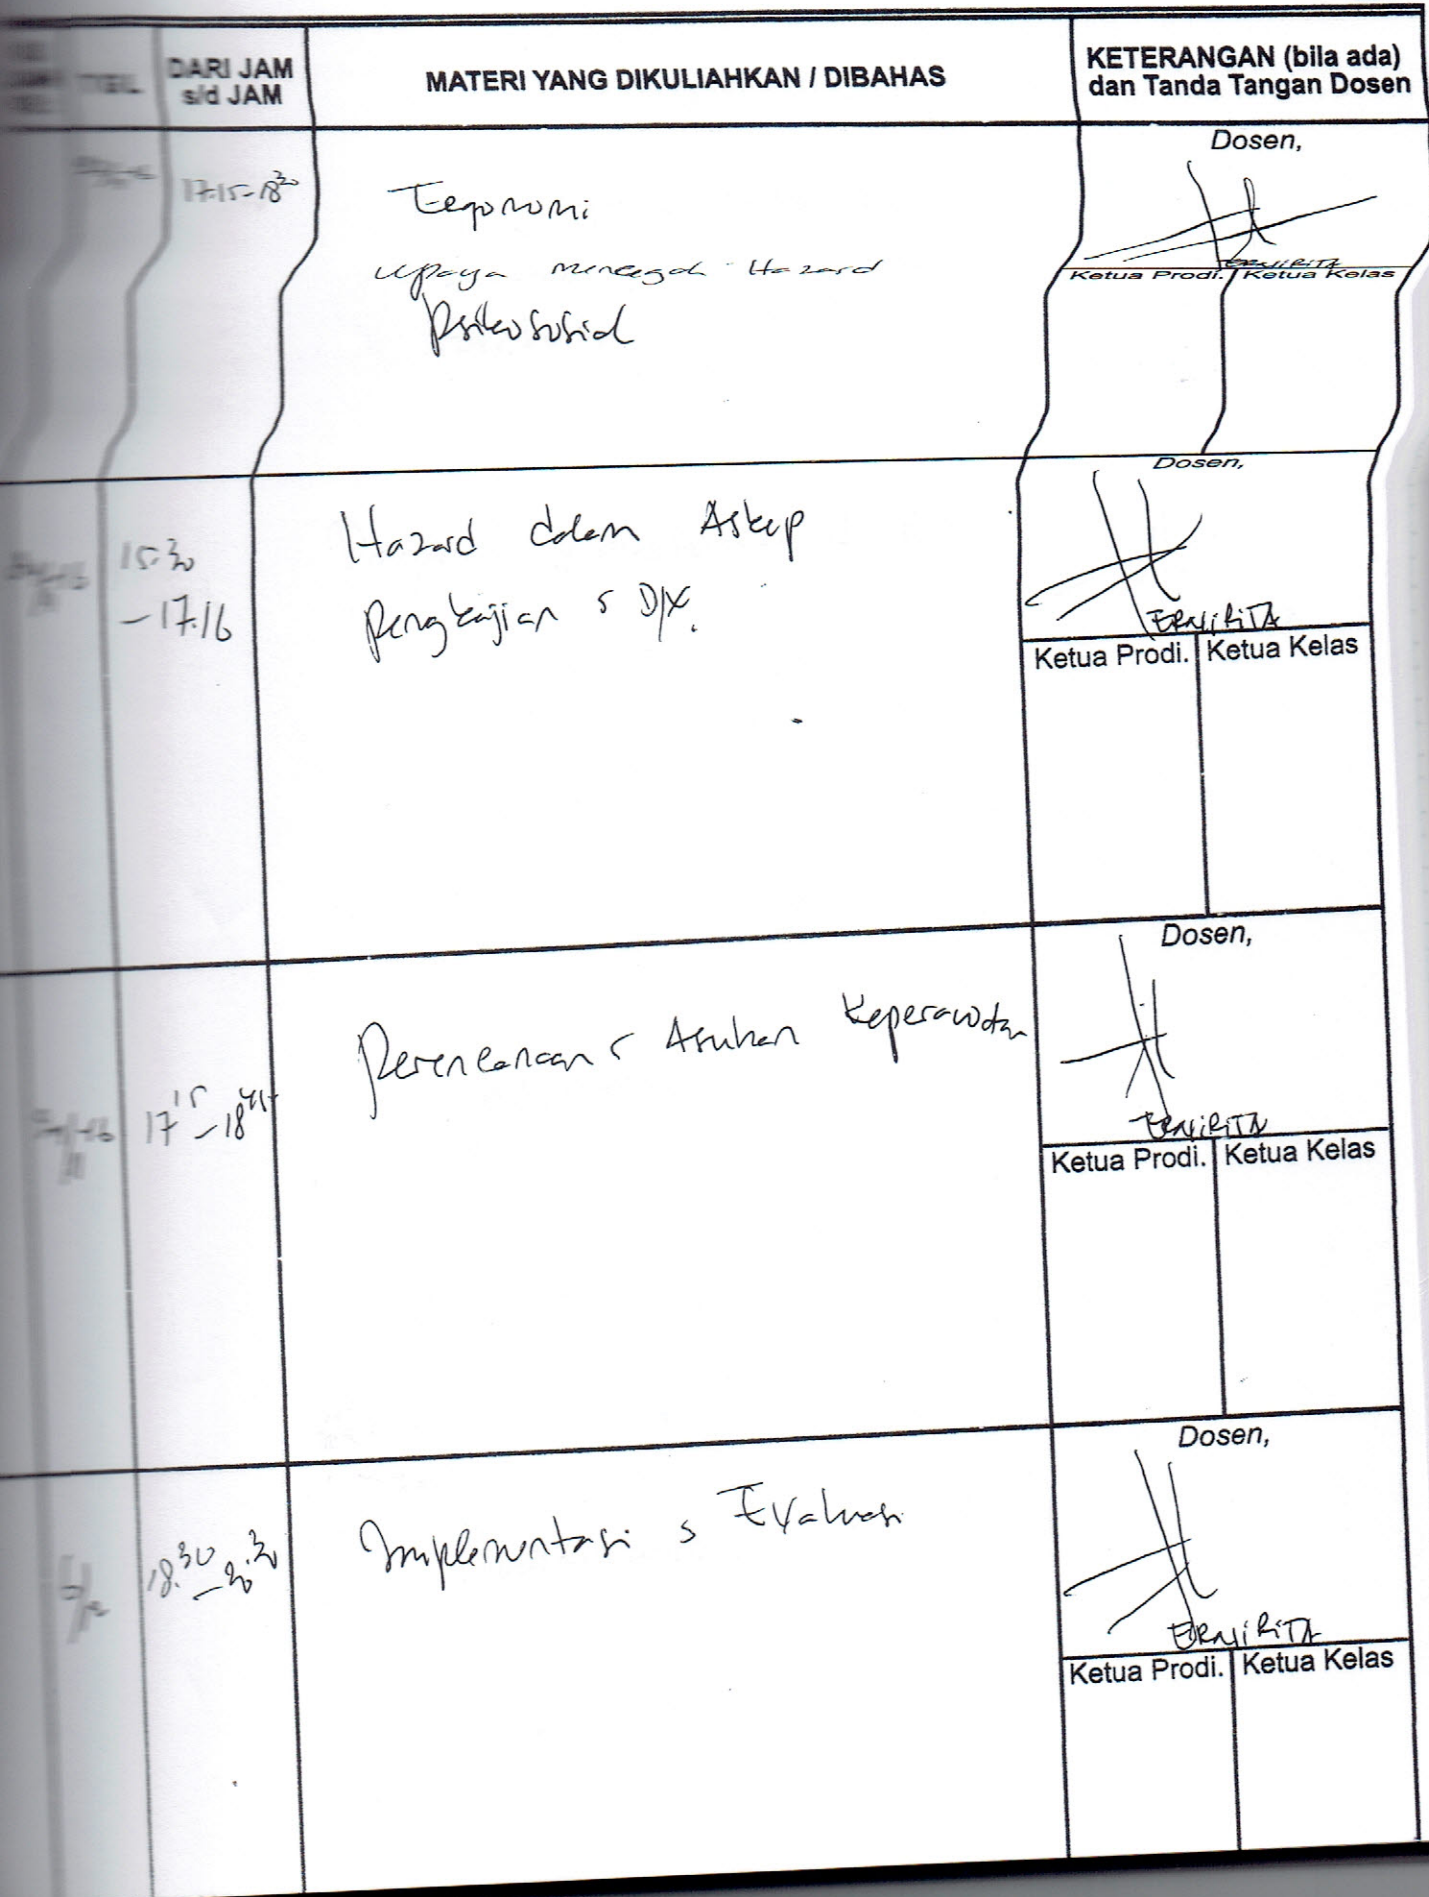 TGL
DARI JAM
s/d JAM
MATERI YANG DIKULIAHKAN / DIBAHAS
KETERANGAN (bila ada)
dan Tanda Tangan Dosen
17.15-18³⁰
Ergonomi
upaya mencegah Hazard
Psikososial
Dosen,
ERNIRITA
Ketua Prodi. Ketua Kelas
15.30
- 17.16
Hazard dalam Askep
Pengkajian & D/X.
Dosen,
ERNIRITA
Ketua Prodi. Ketua Kelas
17¹⁵ - 18⁴⁵
Perencanaan & Asuhan Keperawatan
Dosen,
ERNIRITA
Ketua Prodi. Ketua Kelas
18.³⁰
- 20.³⁰
Implementasi & Evaluasi
Dosen,
ERNIRITA
Ketua Prodi. Ketua Kelas